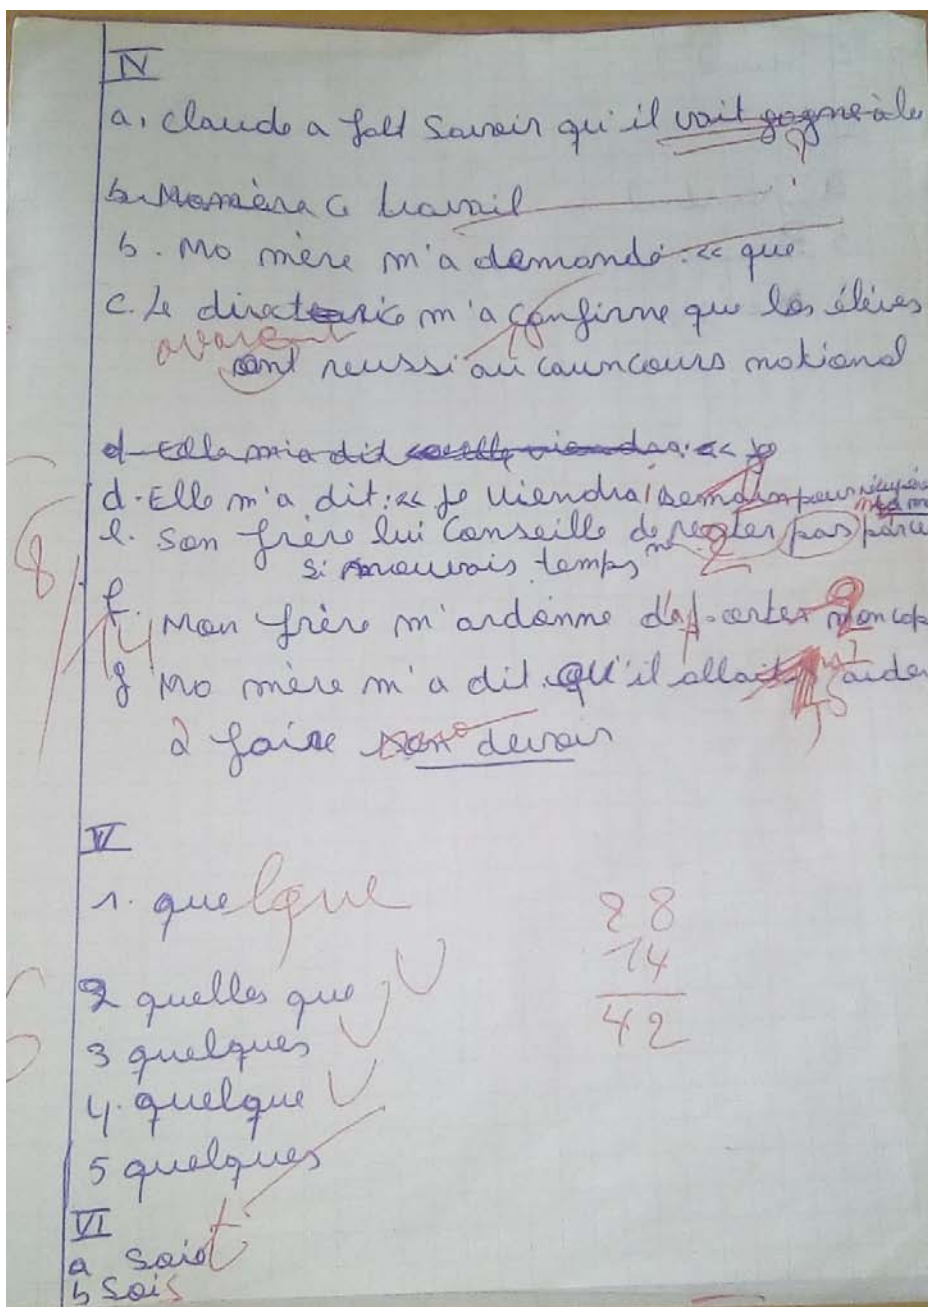 IV
a. Claude a fall Savoir qu'il vait gagné à le
b. Ma mère a travail
b. Ma mère m'a demandé: << que
c. Le directeric m'a confirme que les élèves
avaient
ont reussi au councours national
d- Elle m'a dit : << je
d. Elle m'a dit: << je viendrai demain pour
e. Son frère lui Conseille de rester pas parce
si mauvais temps
f. Mon frère m'ardonne d'apporter mon
g Ma mère m'a dit qu'il allait aider
à faire mon devoir
8/14
V
1. quelque
28
14
42
2 quelles que
3 quelques
4. quelque
5 quelques
VI
a Soit
b Sois